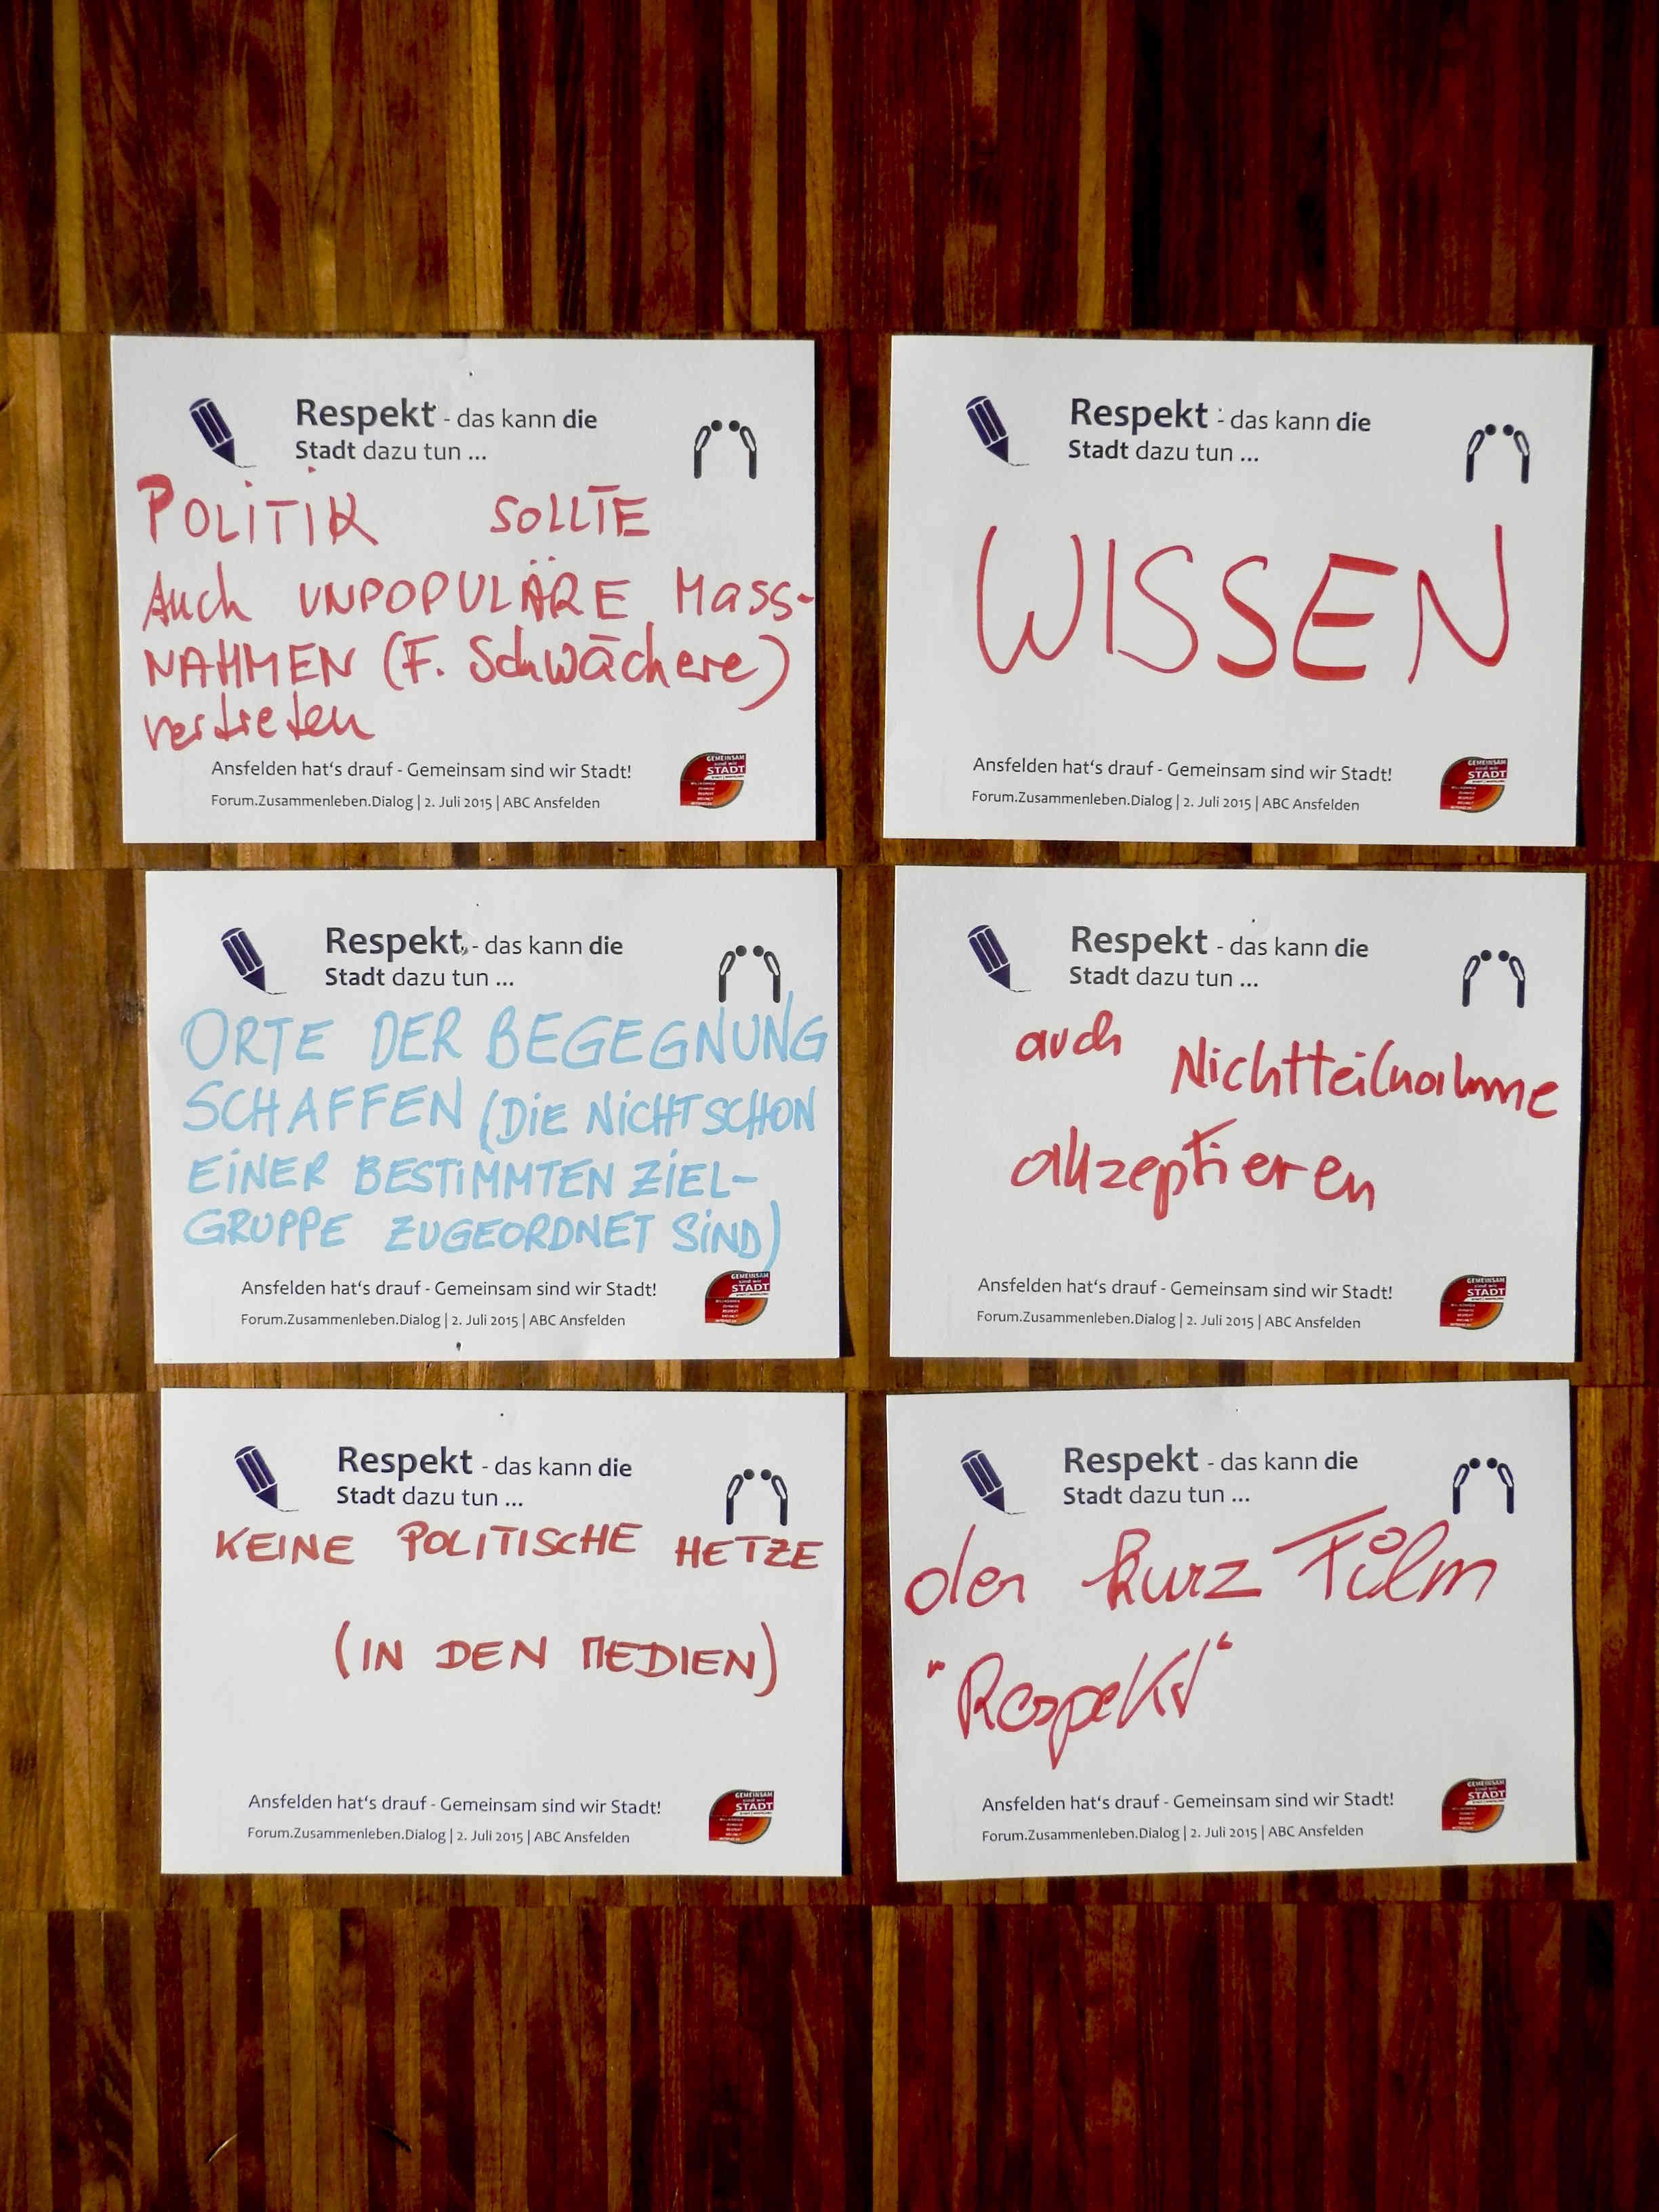 Respekt - das kann die
Stadt dazu tun ...
POLITIK SOLLTE
Auch UNPOPULÄRE MASS-
NAHMEN (F. Schwächere)
vertreten
Ansfelden hat's drauf - Gemeinsam sind wir Stadt!
GEMEINSAM
sind wir
STADT
Forum.Zusammenleben.Dialog | 2. Juli 2015 | ABC Ansfelden
Respekt - das kann die
Stadt dazu tun ...
WISSEN
Ansfelden hat's drauf - Gemeinsam sind wir Stadt!
GEMEINSAM
sind wir
STADT
Forum.Zusammenleben.Dialog | 2. Juli 2015 | ABC Ansfelden
Respekt - das kann die
Stadt dazu tun ...
ORTE DER BEGEGNUNG
SCHAFFEN (DIE NICHT SCHON
EINER BESTIMMTEN ZIEL-
GRUPPE ZUGEORDNET SIND)
Ansfelden hat's drauf - Gemeinsam sind wir Stadt!
GEMEINSAM
sind wir
STADT
Forum.Zusammenleben.Dialog | 2. Juli 2015 | ABC Ansfelden
Respekt - das kann die
Stadt dazu tun ...
auch Nichtteilnahme
akzeptieren
Ansfelden hat's drauf - Gemeinsam sind wir Stadt!
GEMEINSAM
sind wir
STADT
Forum.Zusammenleben.Dialog | 2. Juli 2015 | ABC Ansfelden
Respekt - das kann die
Stadt dazu tun ...
KEINE POLITISCHE HETZE
(IN DEN MEDIEN)
Ansfelden hat's drauf - Gemeinsam sind wir Stadt!
GEMEINSAM
sind wir
STADT
Forum.Zusammenleben.Dialog | 2. Juli 2015 | ABC Ansfelden
Respekt - das kann die
Stadt dazu tun ...
den kurz Film
"Respekt"
Ansfelden hat's drauf - Gemeinsam sind wir Stadt!
GEMEINSAM
sind wir
STADT
Forum.Zusammenleben.Dialog | 2. Juli 2015 | ABC Ansfelden